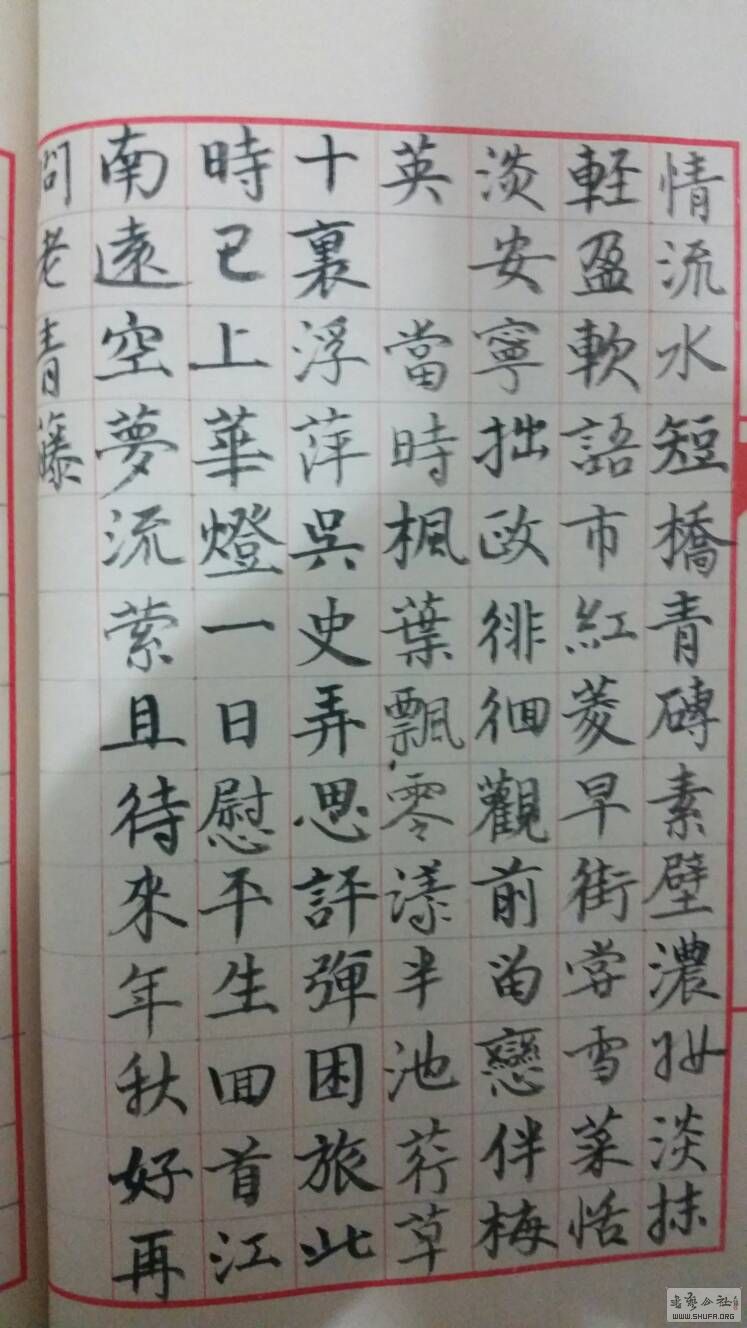 情流水短橋青磚素壁濃妝淡抹
輕盈軟語市紅菱早街嘗雪菜恬
淡安寧拙政徘徊觀前留戀伴梅
英　當時楓葉飄零漾半池荇草
十裏浮萍吳史弄思評彈困旅此
時已上華燈一日慰平生回首江
南遠空夢流縈且待來年秋好再
問老青藤
WWW.SHUFA.ORG